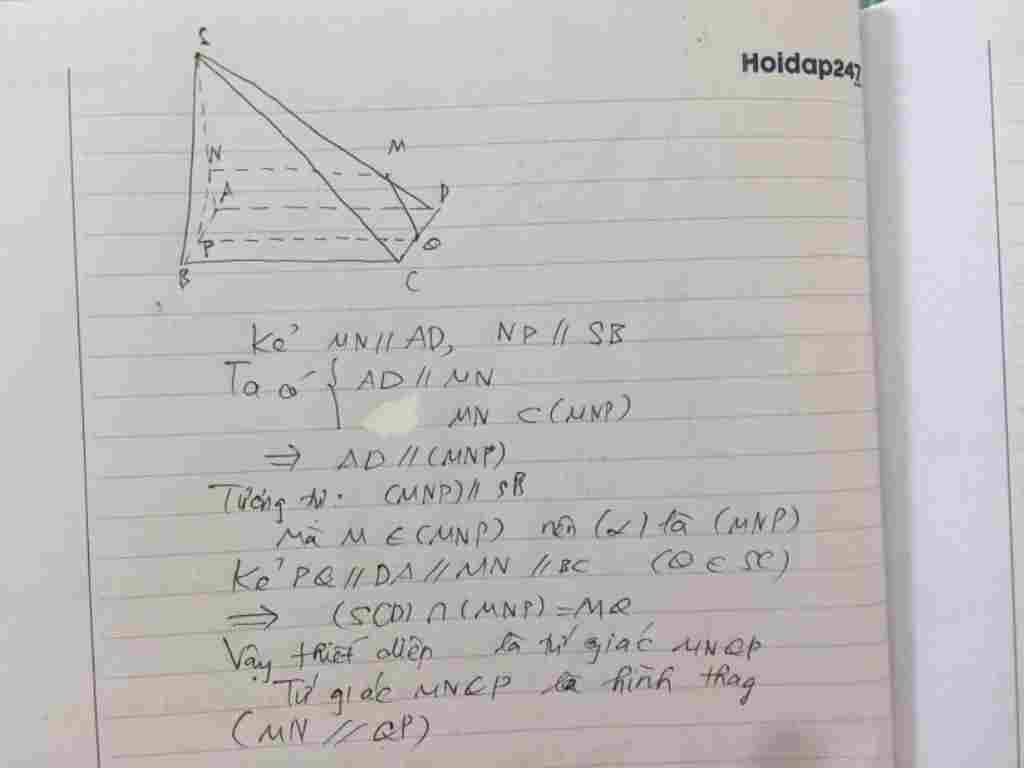 S
Hoidap247
N
M
A
D
P
Q
B
C
Kẻ MN // AD, NP // SB
Ta có { AD // MN
MN ⊂ (MNP)
⇒ AD // (MNP)
Tương tự: (MNP) // SB
Mà M ∈ (MNP) nên (α) là (MNP)
Kẻ PQ // DA // MN // BC (Q ∈ SC)
⇒ (SCD) ∩ (MNP) = MQ
Vậy thiết diện là tứ giác MNQP
Tứ giác MNQP là hình thag
(MN // QP)